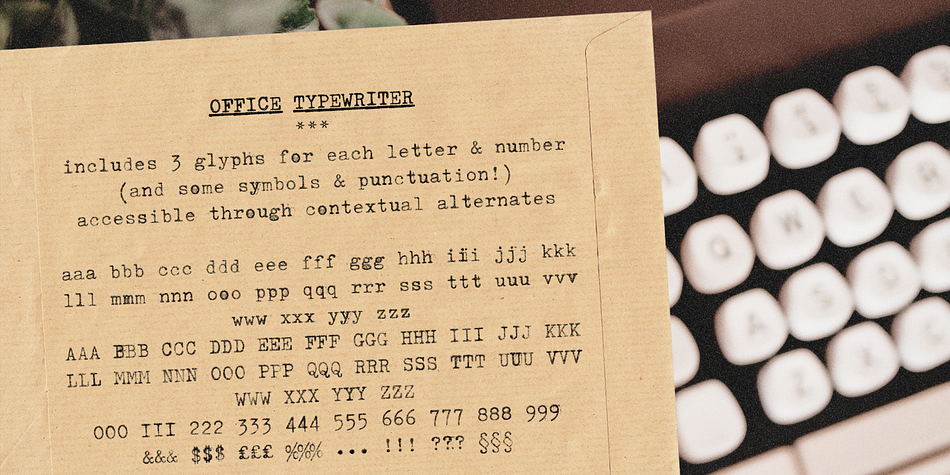 OFFICE TYPEWRITER
***
includes 3 glyphs for each letter & number
(and some symbols & punctuation!)
accessible through contextual alternates
aaa bbb ccc ddd eee fff ggg hhh iii jjj kkk
lll mmm nnn ooo ppp qqq rrr sss ttt uuu vvv
www xxx yyy zzz
AAA BBB CCC DDD EEE FFF GGG HHH III JJJ KKK
LLL MMM NNN OOO PPP QQQ RRR SSS TTT UUU VVV
WWW XXX YYY ZZZ
OOO III 222 333 444 555 666 777 888 999
&&& $$$ £££ %%% ... !!! ??? §§§
Q W E R
A S D
Z X C